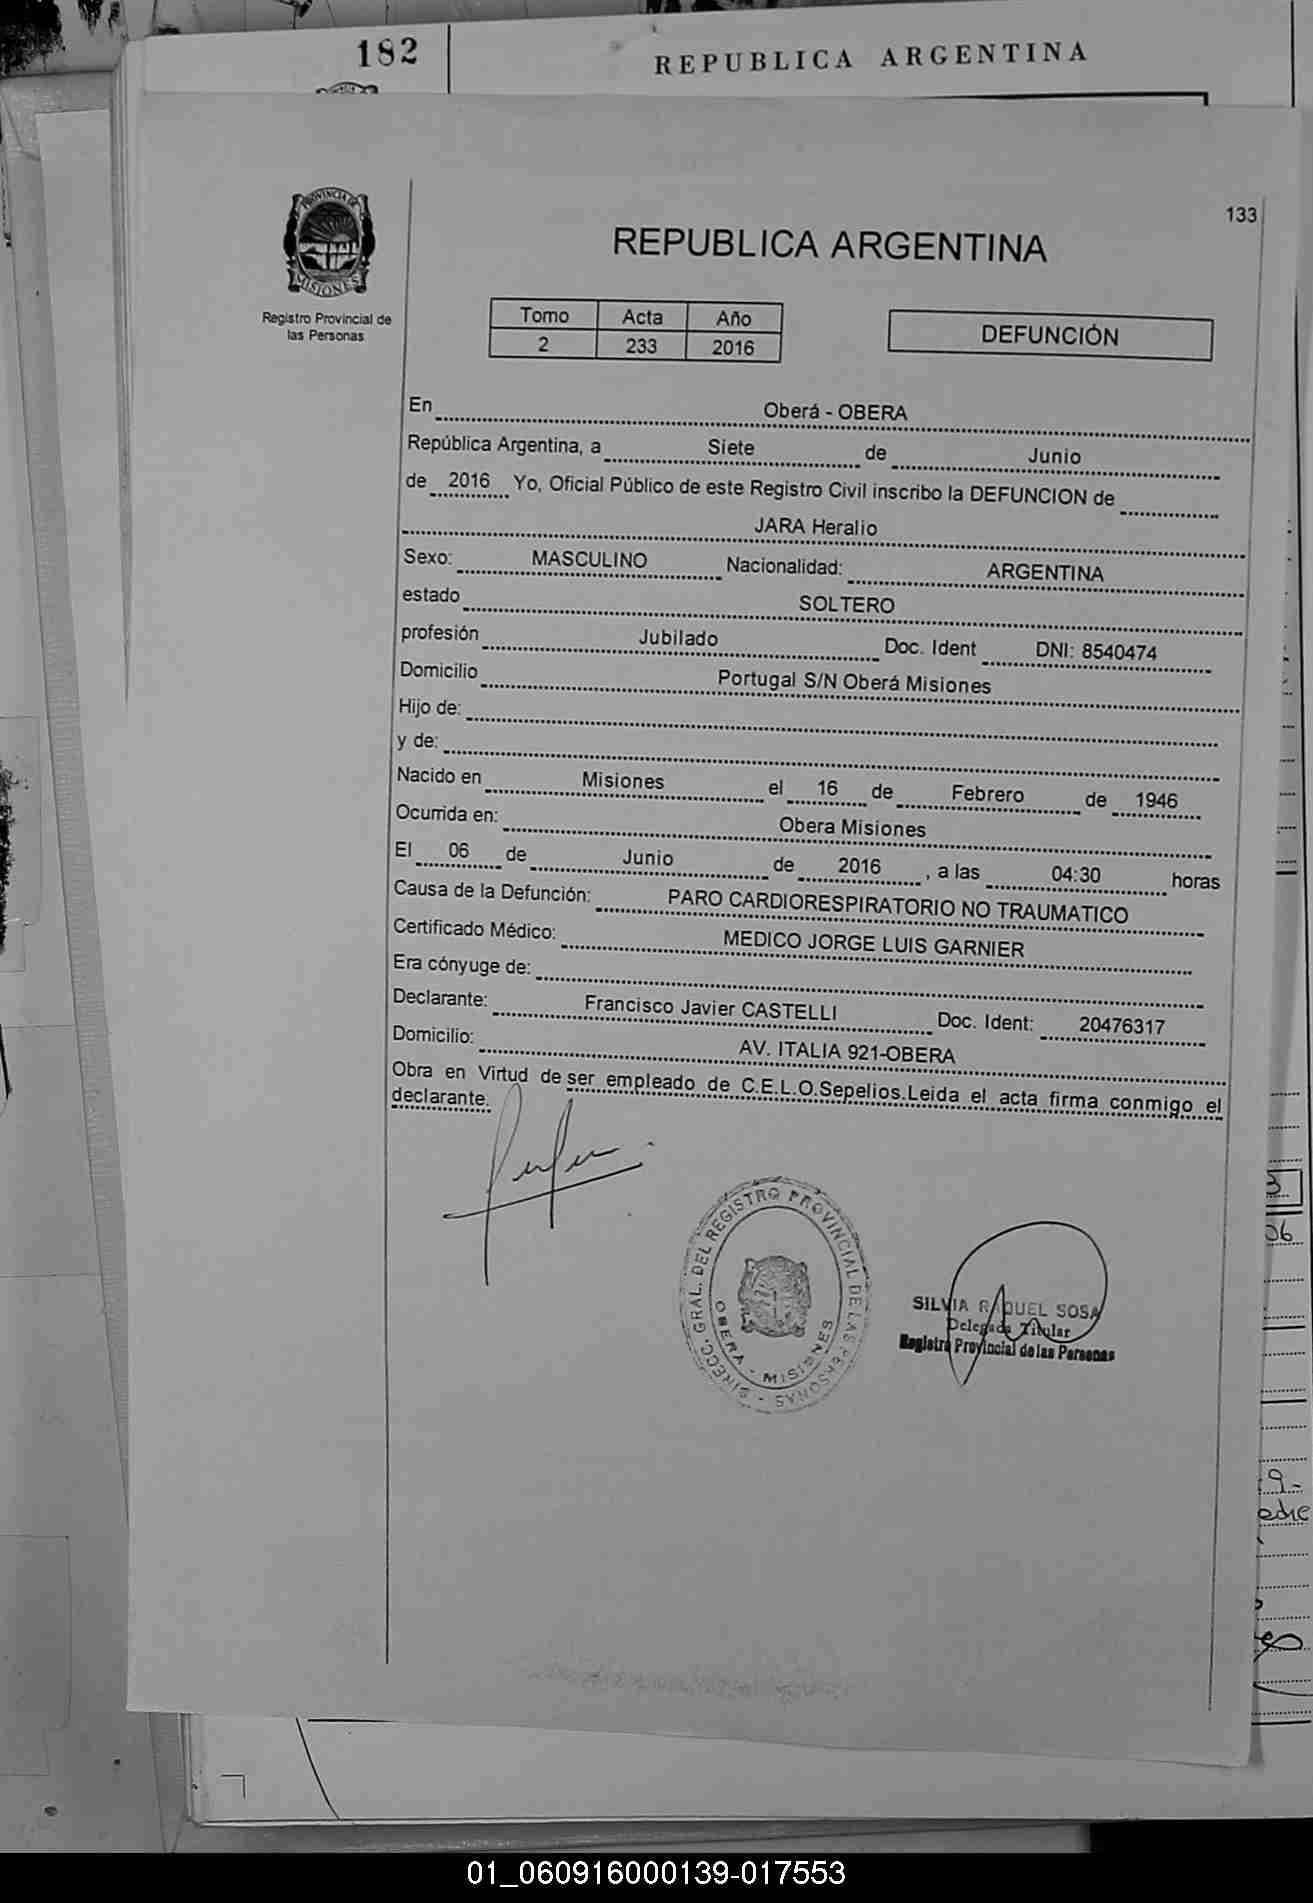 182
REPUBLICA ARGENTINA
133
PROVINCIA DE
MISIONES
Registro Provincial de
las Personas
REPUBLICA ARGENTINA
Tomo Acta Año
2 233 2016
DEFUNCIÓN
En Oberá - OBERA
República Argentina, a Siete de Junio
de 2016 Yo, Oficial Público de este Registro Civil inscribo la DEFUNCION de
JARA Heralio
Sexo: MASCULINO Nacionalidad: ARGENTINA
estado SOLTERO
profesión Jubilado Doc. Ident DNI: 8540474
Domicilio Portugal S/N Oberá Misiones
Hijo de:
y de:
Nacido en Misiones el 16 de Febrero de 1946
Ocurrida en: Obera Misiones
El 06 de Junio de 2016 , a las 04:30 horas
Causa de la Defunción: PARO CARDIORESPIRATORIO NO TRAUMATICO
Certificado Médico: MEDICO JORGE LUIS GARNIER
Era cónyuge de:
Declarante: Francisco Javier CASTELLI Doc. Ident: 20476317
Domicilio: AV. ITALIA 921-OBERA
Obra en Virtud de ser empleado de C.E.L.O.Sepelios.Leida el acta firma conmigo el
declarante.
DIRECC. GRAL. DEL REGISTRO PROVINCIAL DE LAS PERSONAS -
OBERA - MISIONES
SILVIA RAQUEL SOSA
Delegada Titular
Registro Provincial de las Personas
01_060916000139-017553